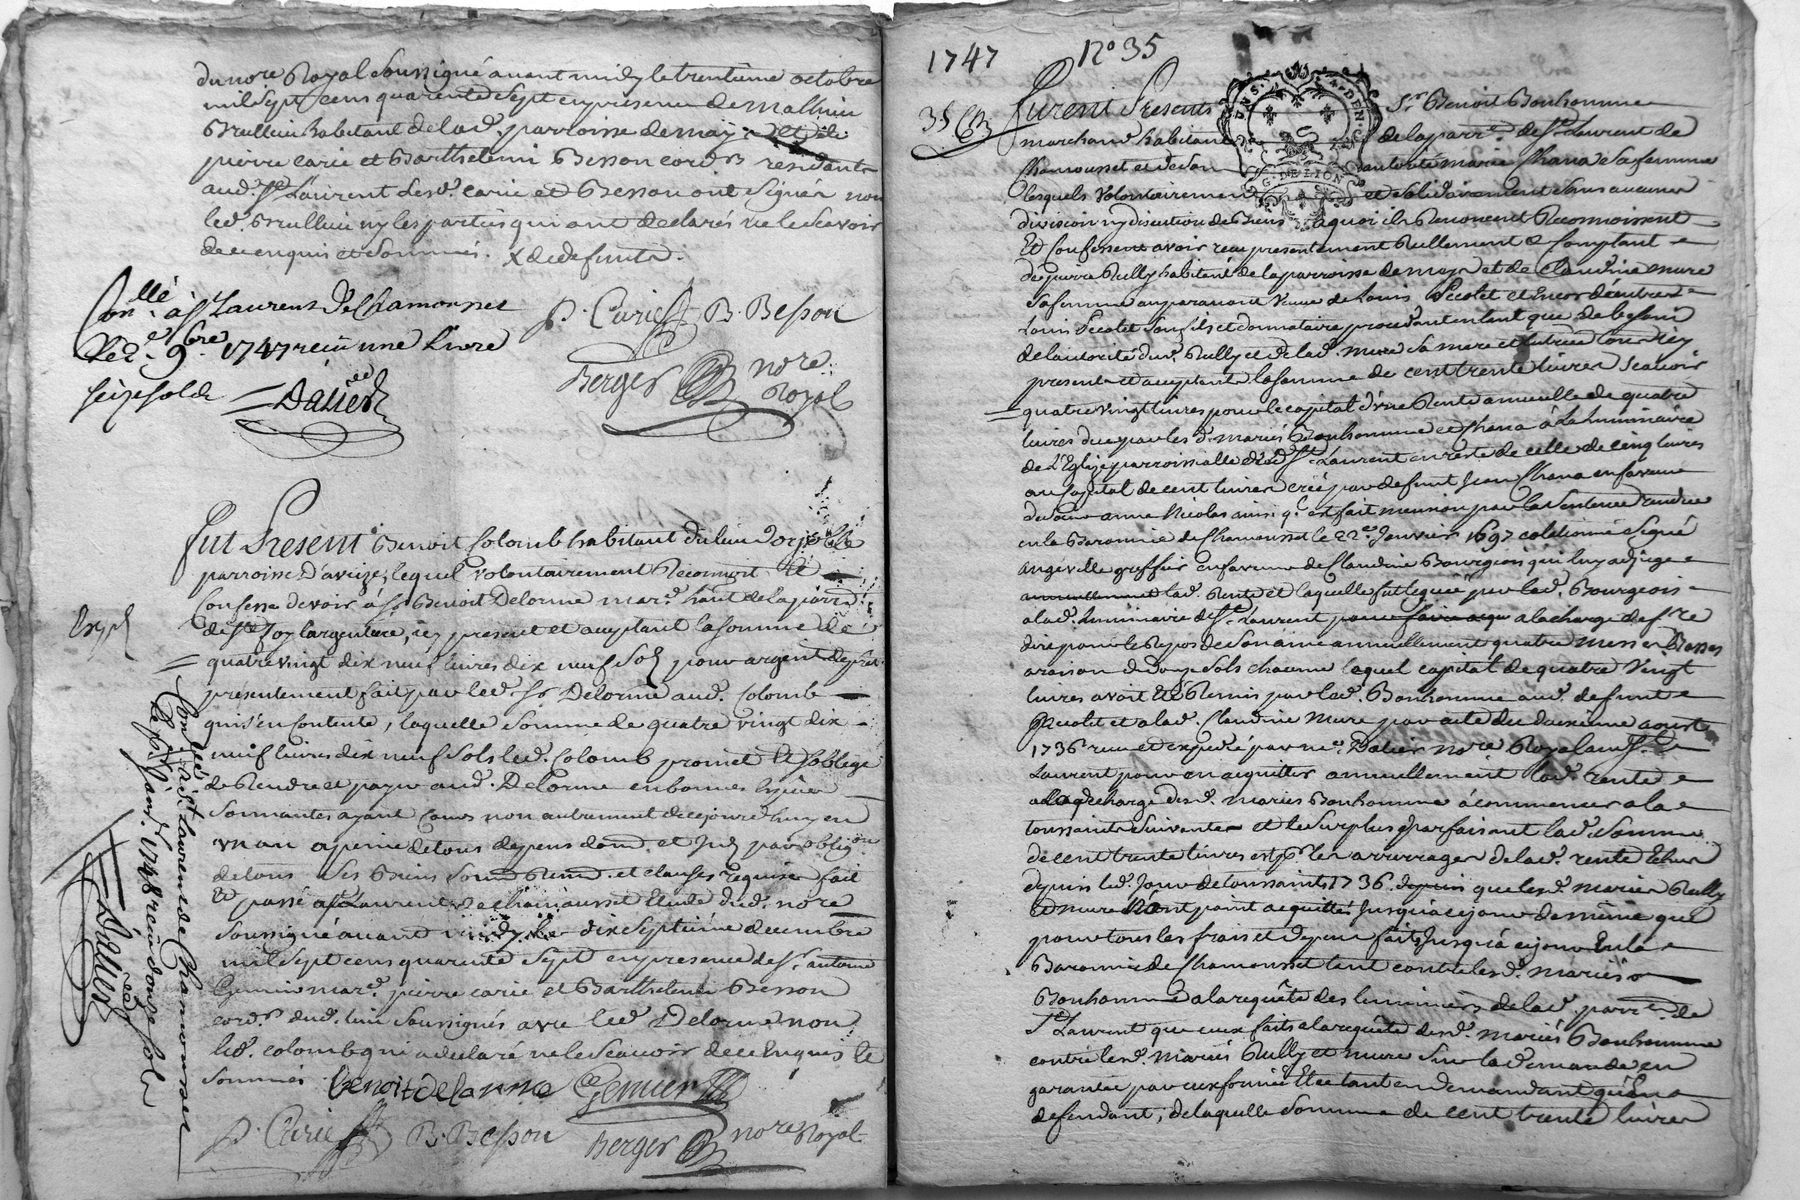 du nore Royal soussigné avant midy le trentieme octobre
mil sept cens quarente sept en presence de Mathieu
Brullein habitant de lad. parroisse de mays et de
pierre carie et Barthelemi Besson cordrs residants
aud. St Laurent lesd. carie et Besson ont signér non
led. Brullein ny les parties qui ont declarés ne le scavoir
de ce enquis et sommés. X de defunte.
Conllé à St Laurent De Chamousset
Le 2e 9bre 1747 recu une Livre
seize sols
Dalier
P. Carie B. Besson
Berger nore
Royal
Fut Present Benoit Colomb habitant du lieu
parroisse D'aveize, lequel volontairement Reconnoit et
Confesse devoir à Sr Benoit Delorme mard. hant de la parr.
de Ste foy largentiere, icy present et acceptant la somme de
quatre vingt dix neuf livres dix neuf sols pour argent de pret
presentement fait par led. Sr Delorme aud. Colomb
qui s'en Contente, laquelle somme de quatre vingt dix
neuf livres dix neuf sols led. Colomb promet et soblige
de Rendre et payer aud. Delorme en bonnes Espèces
sonnantes ayant Cours non autrement de ce jourd'huy en
un an a peine de tous depens dom. et Int. par oblig.on
de tous ses Biens soum. Renon. et clauses requises fait
et passé a St Laurent de chamousset Etude dud. nore
soussigné avant midy le dix septieme decembre
mil sept cens quarente sept en presence de Sr antoine
Genier mard. pierre carie et Barthelemi Besson
cord.rs dud. lieu soussignés avec led. Delorme non
led. colomb qui a declaré ne le Scavoir de ce Enquis et
sommés
benoit delorme Genier
P. Carie B. Besson Berger nore Royal
Conllé à St Laurent de Chamousset
Le janv. 1748 recu douze sols
Dalier
1747 No 35
35
Furent Presents Sr Benoit Bonhomme
marchand habitant de la parr. de St Laurent de
Chamousset et de son autorité marie Chana sa femme
lesquels volontairement et solidairement sans aucune
division ny discution de Biens a quoi ils Renoncent Reconnoissent
Et Confessent avoir recu presentement Reellement & Comptant
de pierre Rully habitant de la parroisse de mays et de Claudine mure
sa femme auparavant veuve de Louis Pecolet et Encor d'autre
Louis Pecolet son fils et donnataire procedant en tant que de besoin
de l'autorité dud. Rully et de lad. mure sa mere et tutrice
presents et acceptants la somme de cent trente livres scavoir
quatre vingt livres pour le capital d'une Rente annuelle de quatre
livres due par les d. mariés Bonhomme et Chana à La Luminaire
de l'Eglize parroissialle dud. St Laurent en reste de celle de cinq livres
au capital de cent livres créé par defunt Jean Chana en faveur
anne Nicolas ainsi q. est fait mention par la sentence rendue
en la Baronnie de Chamousset le 22e Janvier 1697 colationné signé
angeville greffier en faveur de Claudine Bourgeois qui luy adjuge
annuellement lad. Rente et laquelle fut leguée par lad. Bourgeois
a lad. Luminaire de St Laurent a la charge de fre
dire pour le Repos de son ame annuellement quatre Messes Basses
a raison de douze sols chacune lequel capital de quatre Vingt
livres avoit été Remis par led. Bonhomme aud. defunt
Pecolet et a lad. Claudine Mure par acte du deuxieme aoust
1736 recu et expedié par me. Dalier nore Royal aud. St
Laurent pour en acquitter annuellement lad. rente
a la décharge desd. mariés Bonhomme à commencer a la
toussaints suivante et le surplus parfaisant lad. somme
de cent trente livres est pr. les arrerages de lad. rente Echus
depuis led. Jour de toussaints 1736 depuis que lesd. mariés Rully
et mure n'ont point acquittés Jusqu'à ce jour de même que
pour tous les frais et depens faits Jusqu'à ce jour En la
Baronnie de Chamousset tant contre lesd. mariés
Bonhomme a la requête des luminiers de lad. parr. de
St Laurent que ceux faits a la requête desd. mariés Bonhomme
contre lesd. mariés Rully et mure sur la demande en
garantie par eux formée Et ce tant en demandant qu'En
defendant, de laquelle somme de cent trente livres